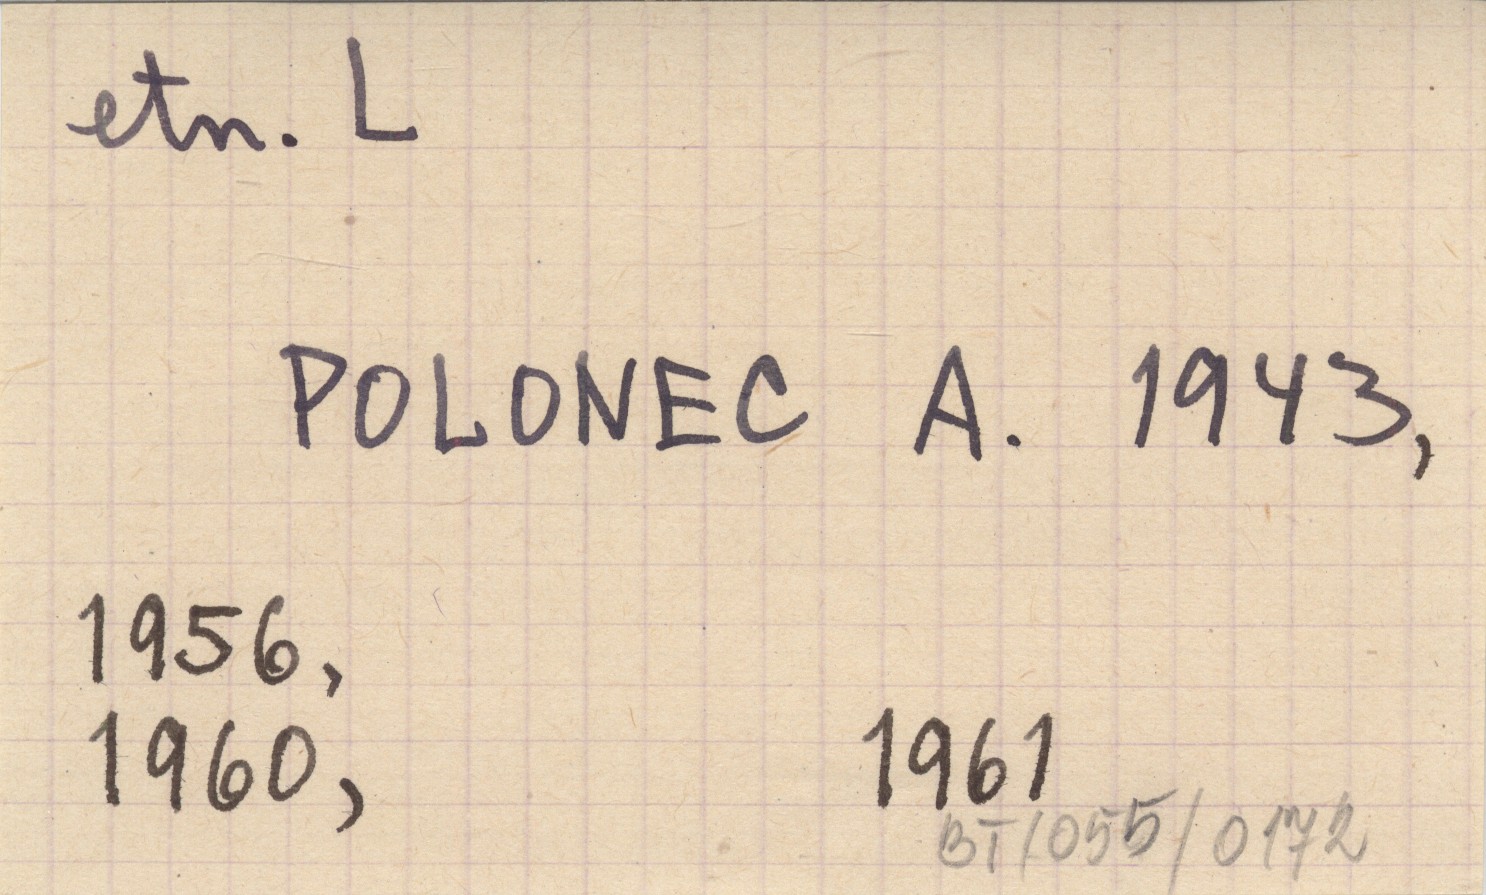 etn. L
POLONEC A. 1943,
1956,
1960, 1961
BT/055/0172